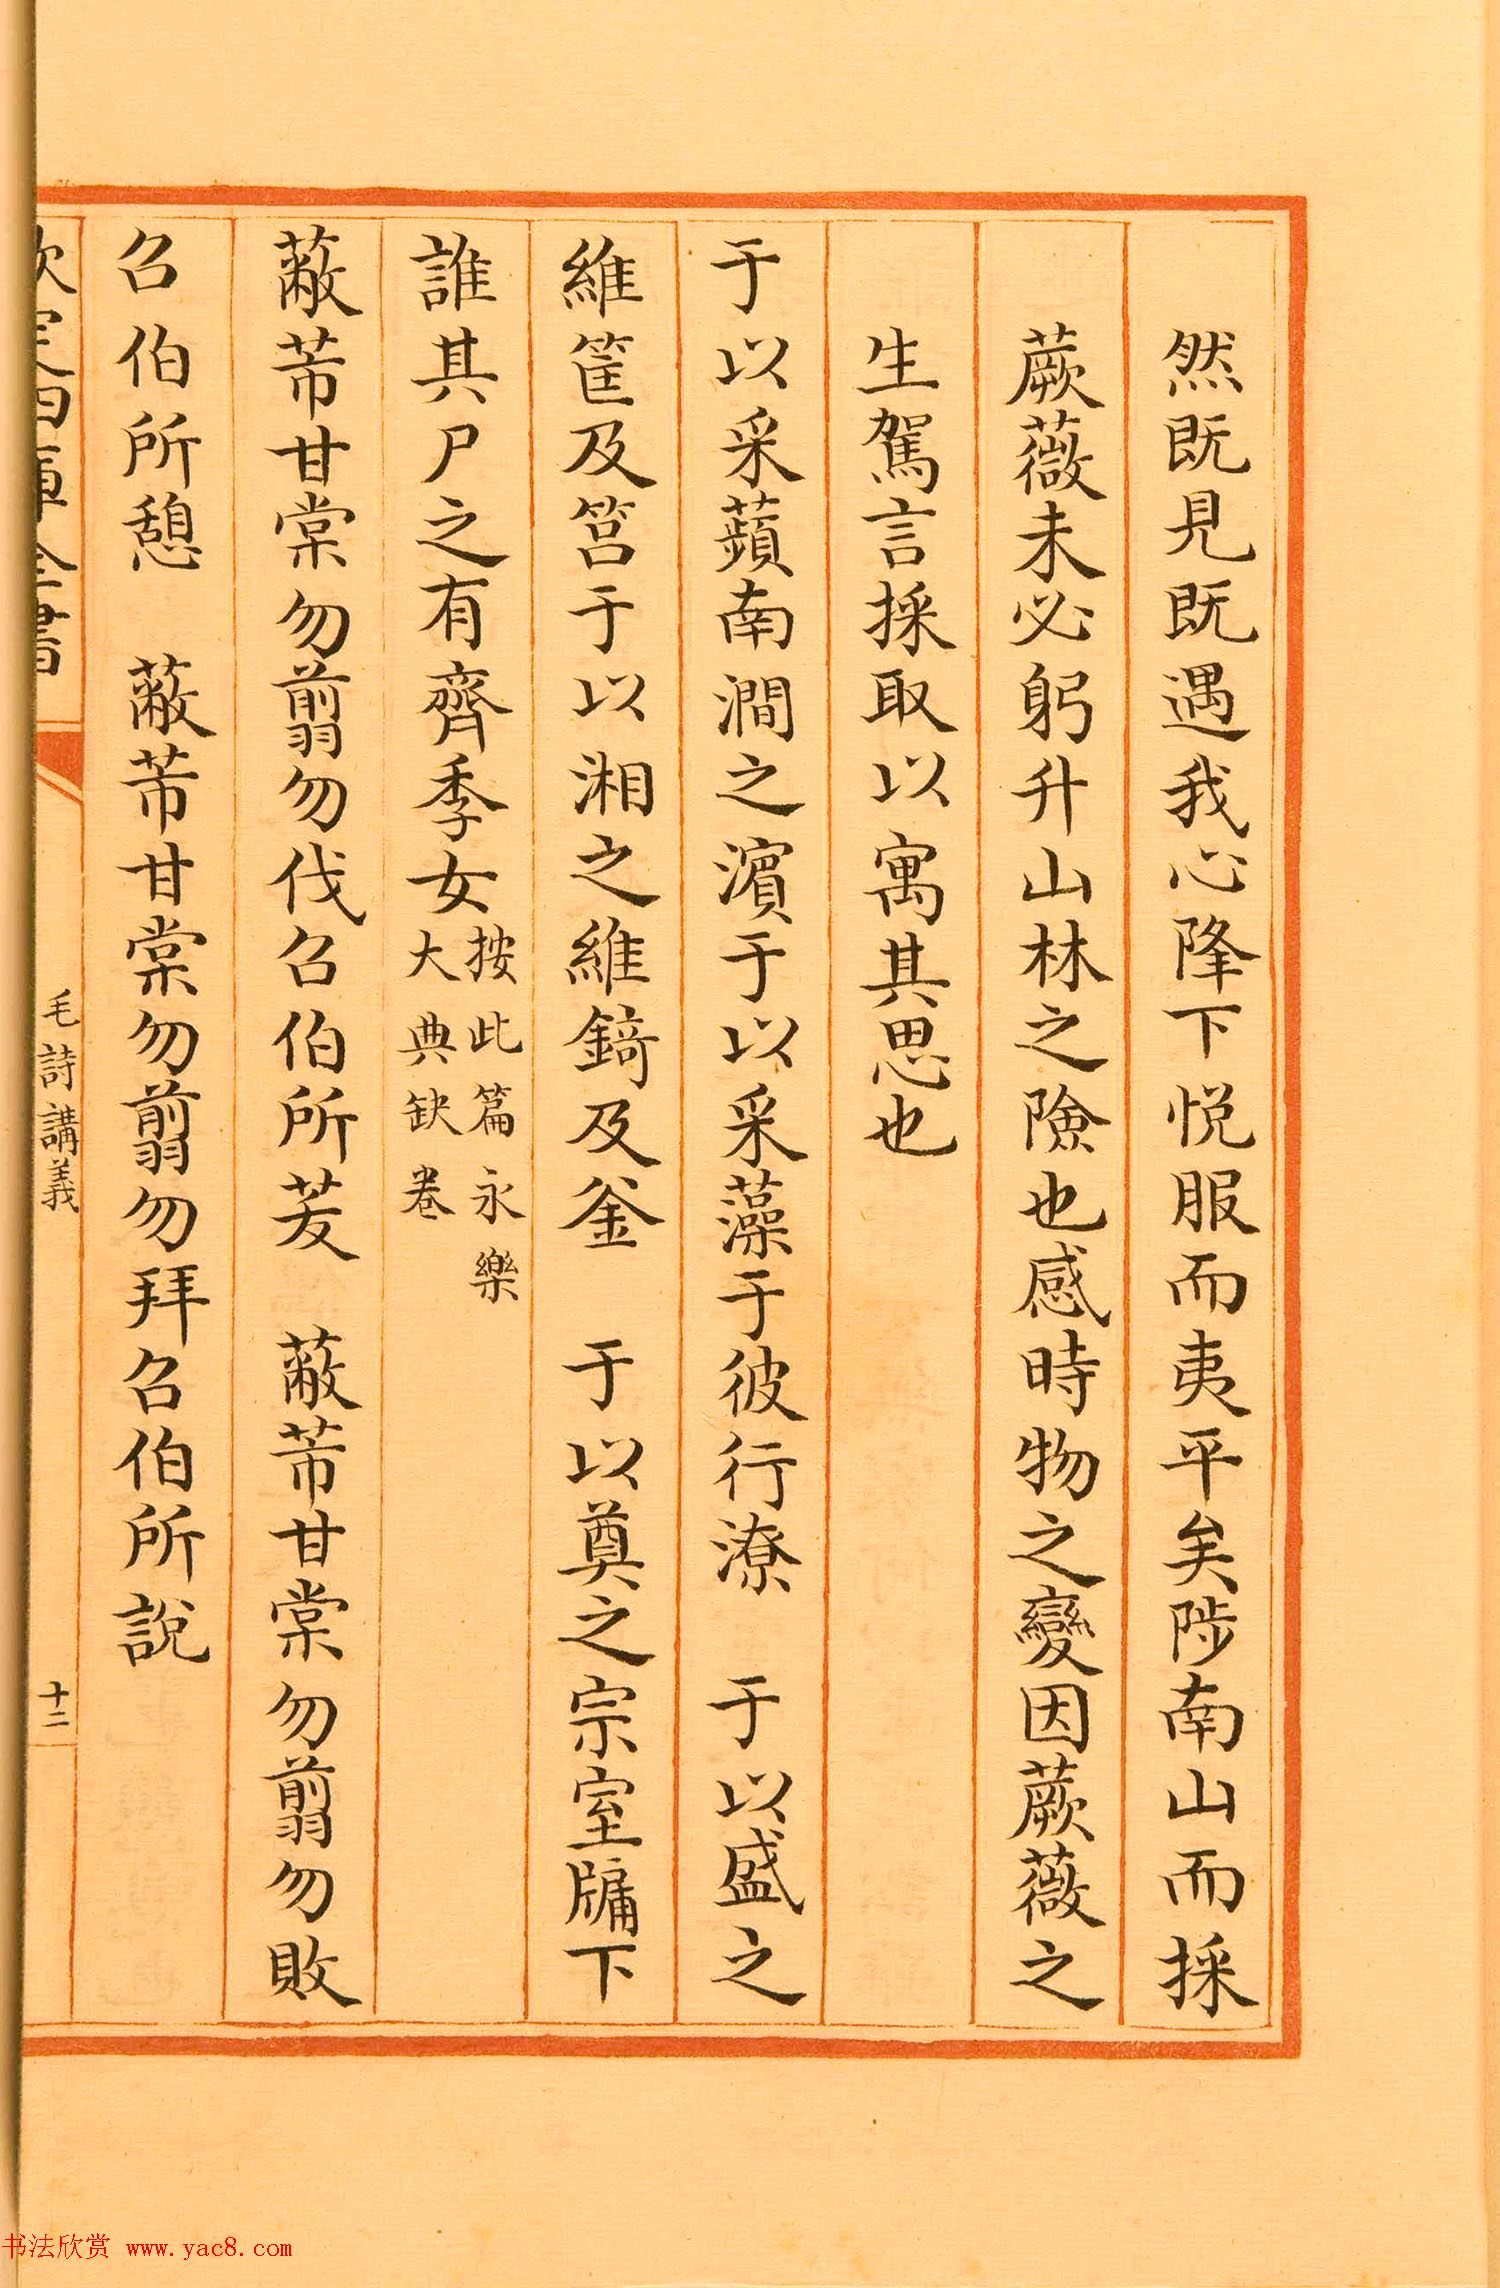 然既見既遇我心降下悅服而夷平矣陟南山而採
蕨薇未必躬升山林之險也感時物之變因蕨薇之
生駕言採取以寓其思也
于以采蘋南澗之濱于以采藻于彼行潦　于以盛之
維筐及筥于以湘之維錡及釜　于以奠之宗室牖下
誰其尸之有齊季女
按此篇永樂
大典缺卷
蔽芾甘棠勿翦勿伐召伯所茇　蔽芾甘棠勿翦勿敗
召伯所憩　蔽芾甘棠勿翦勿拜召伯所說
欽定四庫全書
毛詩講義
十二
书法欣赏 www.yac8.com